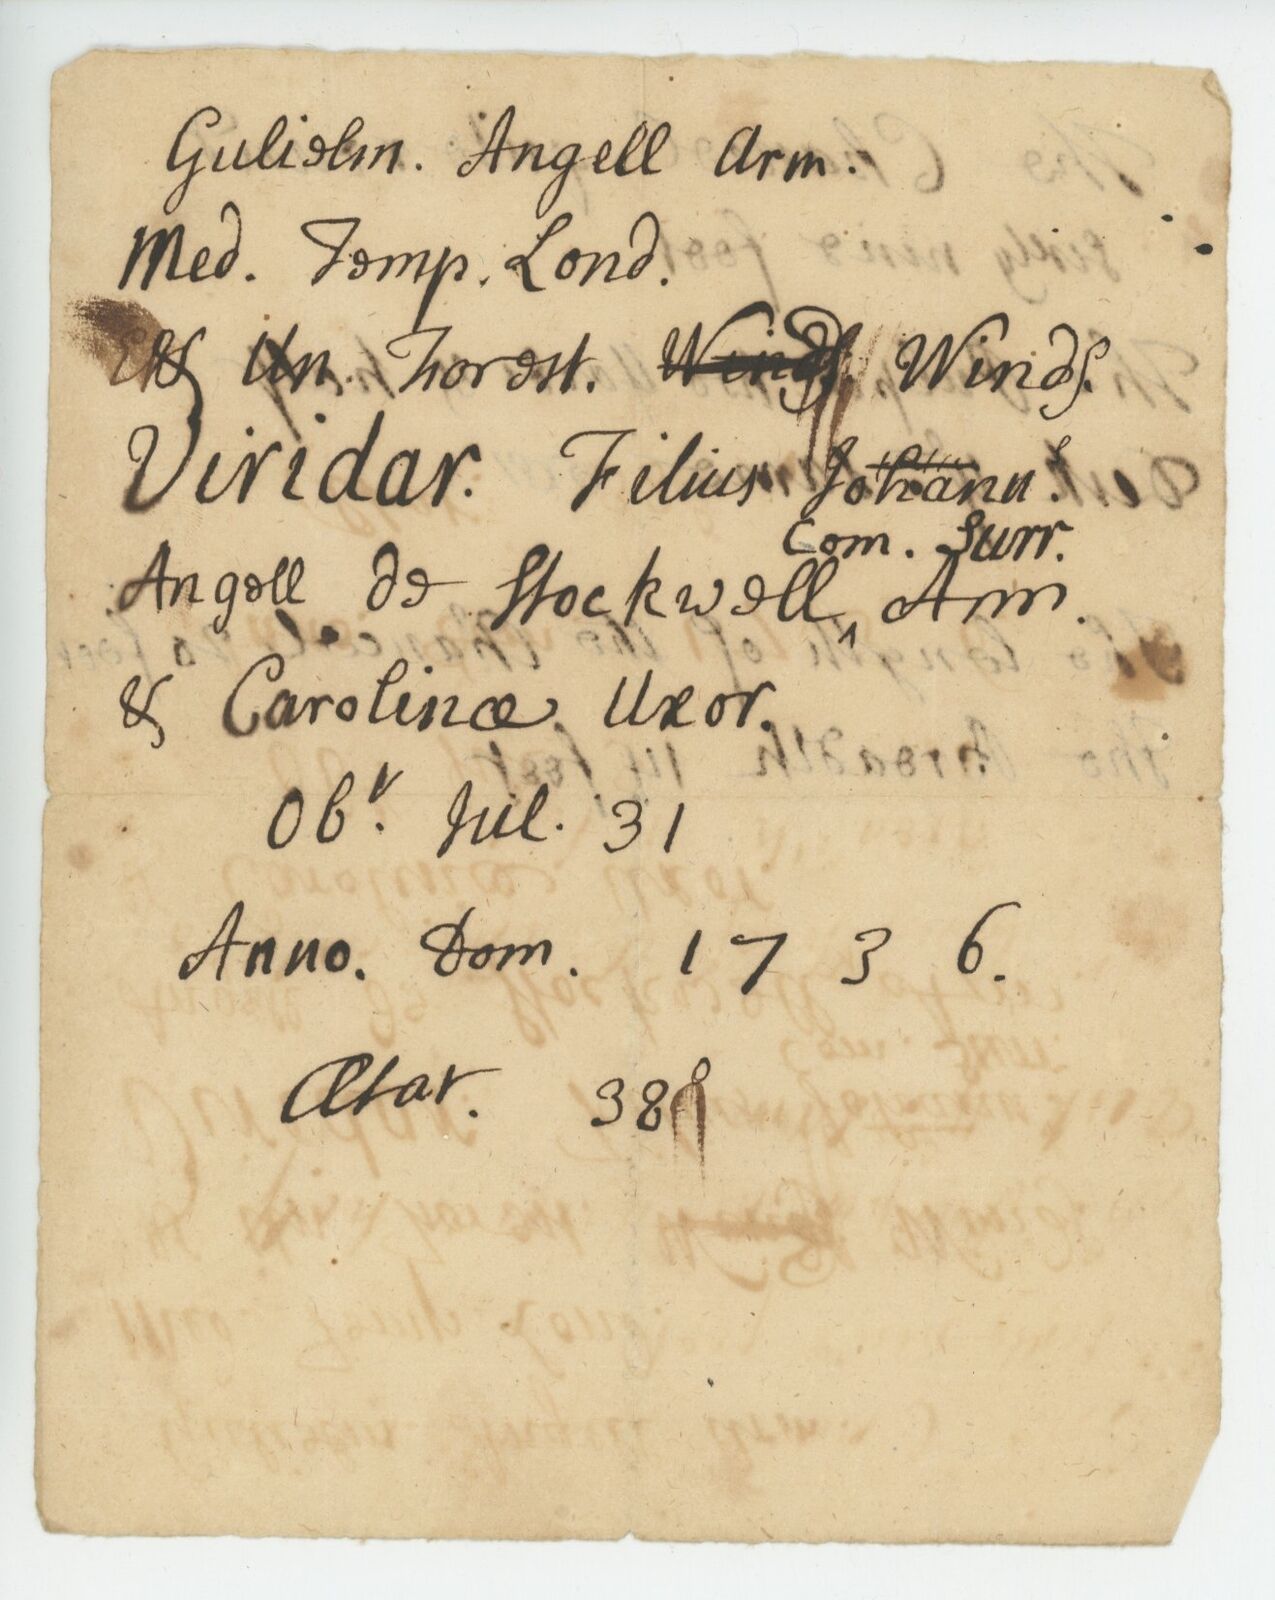 Gulielm. Angell Arm.
Med. Temp. Lond.
& Un. Forest. Winds. Winds.
Viridar. Filius Johann.s
Com. Surr.
Angell de Stockwell ^ Arm.
& Carolinæ Uxor.
Obt. Jul. 31
Anno. Dom. 1736.
Ætat. 38